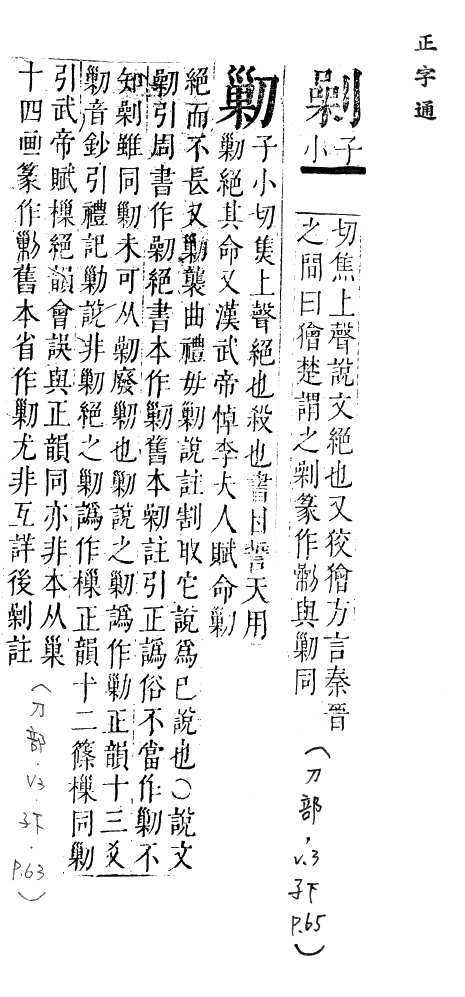 正字通
剿
子小
切焦上聲說文絕也又狡獪方言秦晉
之間曰獪楚謂之剿篆作𠞰與剿同
(刀部.V.3子下P.65)
剿
子小切焦上聲絕也殺也書甘誓天用
剿絕其命又漢武帝悼李夫人賦命剿
絕而不長又剿襲曲禮毋剿說註割取它說爲已說也○說文
剿引周書作剿絕書本作剿舊本剿註引正譌俗不當作剿不
知剿雖同剿未可从剿廢剿也剿說之剿譌作勦正韻十三爻
勦音鈔引禮記勦說非剿絕之剿譌作樔正韻十二篠樔同剿
引武帝賦樔絕韻會誤與正韻同亦非本从巢
十四画篆作剿舊本省作剿尤非互詳後剿註
(刀部.V3.子下.P.63)